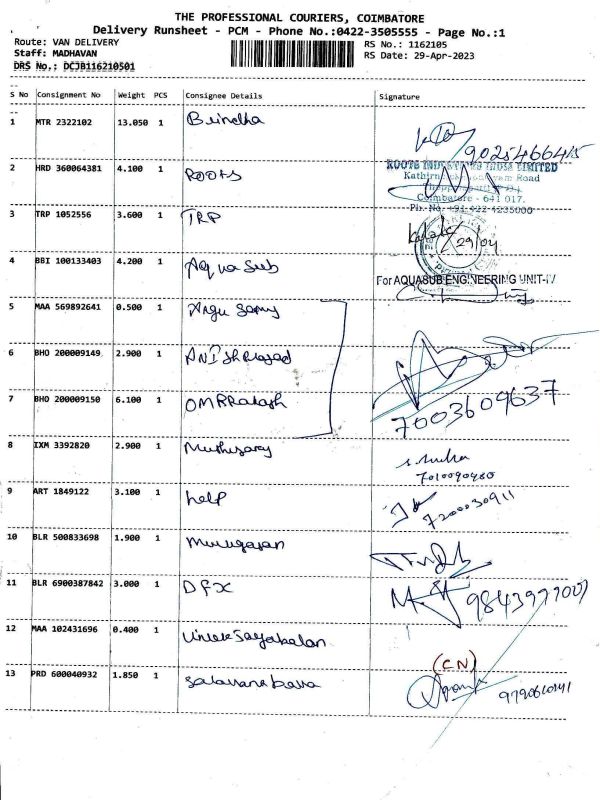 THE PROFESSIONAL COURIERS, COIMBATORE
Delivery Runsheet - PCM - Phone No.:0422-3505555 - Page No.:1
Route: VAN DELIVERY
RS No.: 1162105
Staff: MADHAVAN
RS Date: 29-Apr-2023
DRS No.: DCJB116210501
S No Consignment No Weight PCS Consignee Details Signature
1 MTR 2322102 13.050 1 Brindha
9025466415
2 HRD 360064381 4.100 1 ROOTS
ROOTS INDUSTRIES INDIA LIMITED
Road
Coimbatore - 641 017.
Ph. No. +91 422 4235000
3 TRP 1052556 3.600 1 TRP
29/04
4 BBI 100133403 4.200 1 Aqua Sub
For AQUASUB ENGINEERING UNIT-IV
5 MAA 569892641 0.500 1 Angu Samy
6 BHO 200009149 2.900 1
7 BHO 200009150 6.100 1 OMPRakash
7003609637
8 IXM 3392820 2.900 1 Muthusamy
7010090480
9 ART 1849122 3.100 1 help
7200030911
10 BLR 500833698 1.900 1 Murugasan
11 BLR 6900387842 3.000 1 DFX
9843977007
12 MAA 102431696 0.400 1
(CN)
13 PRD 600040932 1.850 1